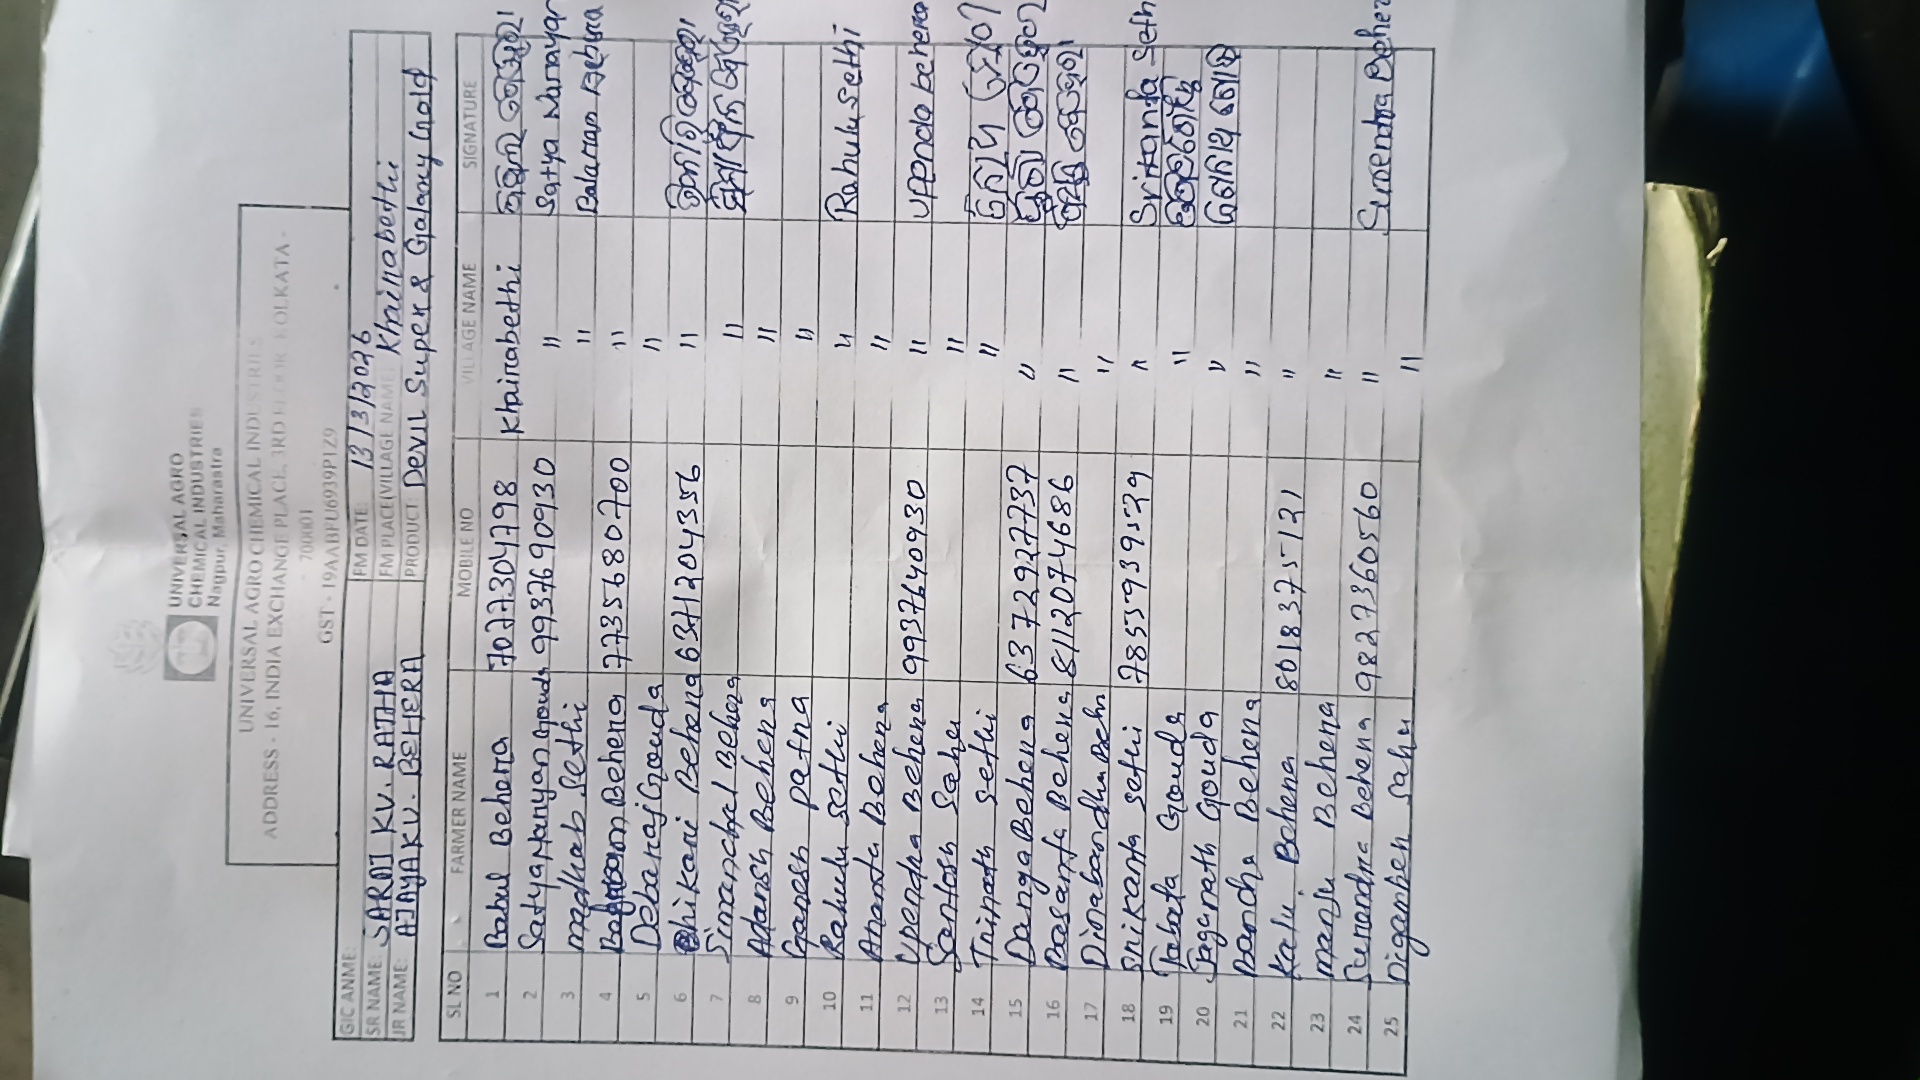 UNIVERSAL AGRO
CHEMICAL INDUSTRIES
Nagpur, Maharasatra
UNIVERSAL AGRO CHEMICAL INDUSTRIES
ADDRESS - 16, INDIA EXCHANGE PLACE, 3RD FLOOR KOLKATA -
700001
GST - 19AABFU6939P1Z9
GIC ANME: FM DATE: 13/3/2026
SR NAME: SARAT KU. RATHA FM PLACE(VILLAGE NAME: Khairabethi
JR NAME: AJAYA KU. BEHERA PRODUCT: DEVIL Super & Galaxy Gold
SL NO FARMER NAME MOBILE NO VILLAGE NAME SIGNATURE
1 Babul Behera 7077304798 Khairabethi
2 Satya Narayan Gouda 9937690930 " Satya Narayan
3 Madhab Sethi " Balaram
4 Behera 7735680700 "
5 Debaraj Gouda "
6 Bhikari Behera 6371204356 "
7 Simanchal Behera "
8 Adarsh Behera "
9 Ganesh Patra "
10 Rahulu Sethi " Rahulu sethi
11 Ananta Behera "
12 Upendra Behera 9937640930 " Upendra behera
13 Santosh Sahu "
14 Trinath Sethi "
15 Danga Behera 6372927737 "
16 Basanta Behera 8112074686 "
17 Dinabandhu "
18 Srikanta Sethi 7855939529 " Srikanta Seth
19 Tabata Gouda "
20 Jaganath Gouda "
21 Bancha Behera "
22 Kalu Behera 8018375121 "
23 Manju Behera "
24 Surendra Behera 9827360560 " Surendra Beher
25 Digamber Sahu "